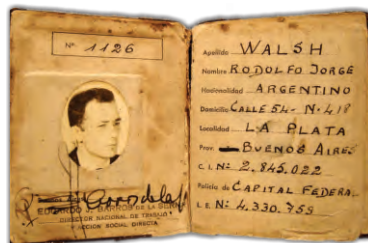 Nº 1126
EDUARDO J. BARROS DE LA
DIRECTOR NACIONAL DE TRABAJO Y
ACCION SOCIAL DIRECTA
Apellido WALSH
Nombre RODOLFO JORGE
Nacionalidad ARGENTINO
Domicilio CALLE 54- N-418
Localidad LA PLATA
Prov. BUENOS AIRES
C.I. Nº 2.845.022
Policia de CAPITAL FEDERAL
L E Nº 4.330.759